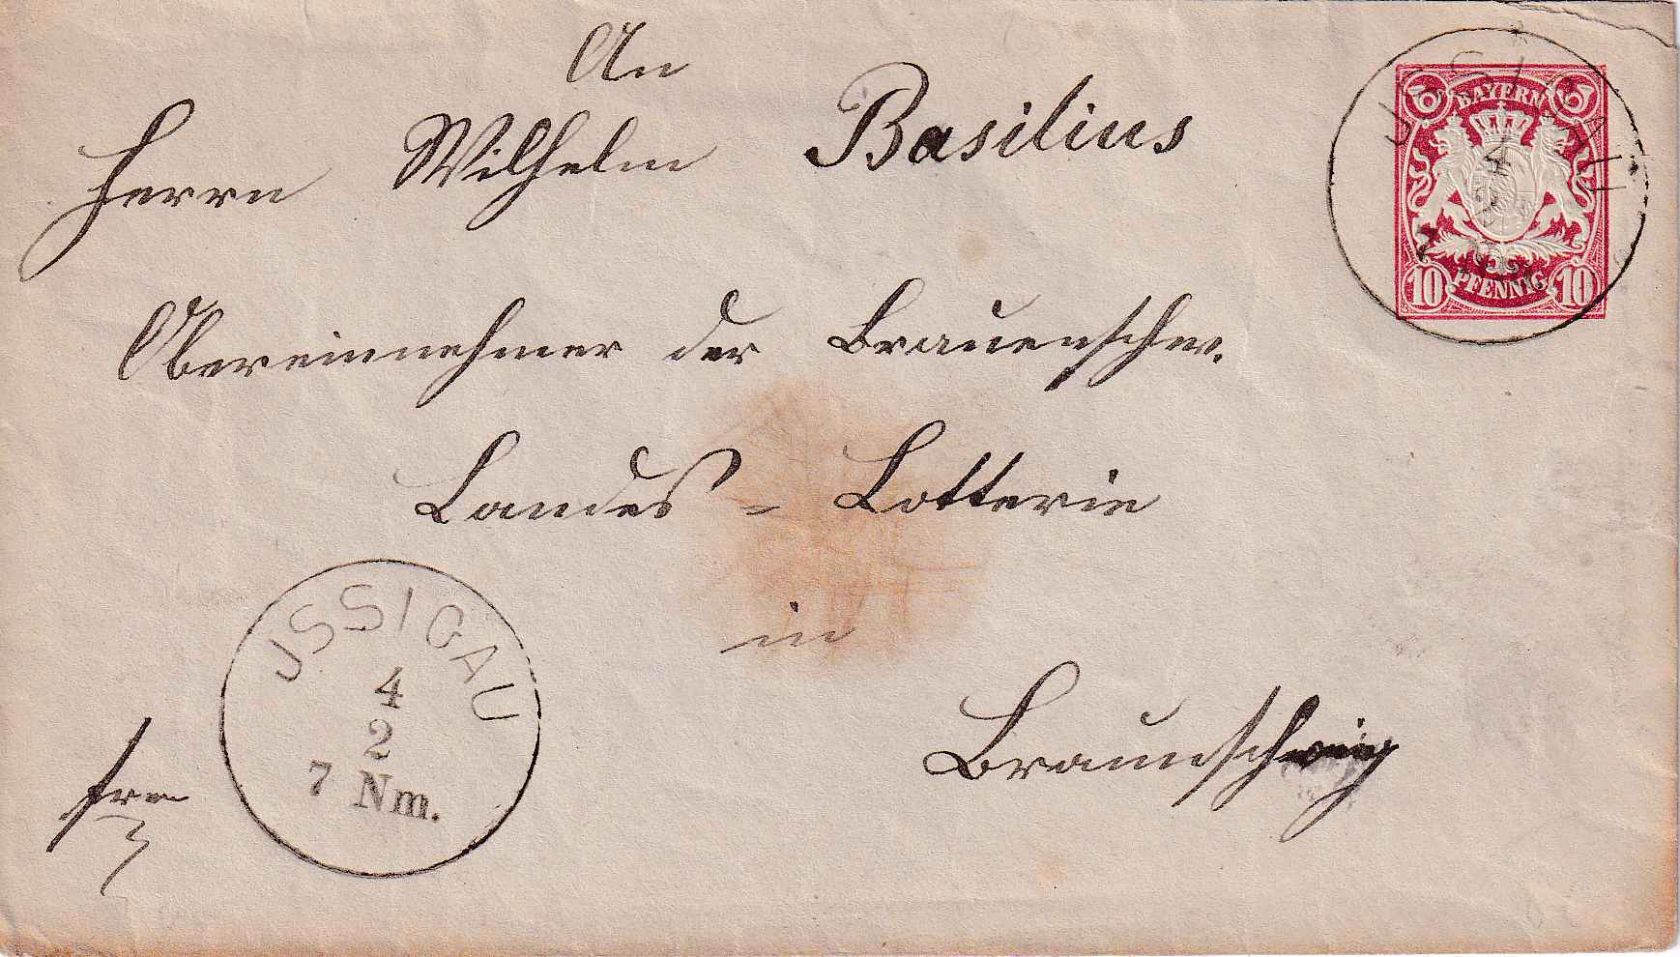 An
Herrn Wilhelm Basilius
Obereinnehmer der Brauenschw.
Landes-Lotterie
in
Braunschweig
frco
BAYERN
10 PFENNIG 10
JSSIGAU
4
2
7 Nm.
JSSIGAU
4
2
7